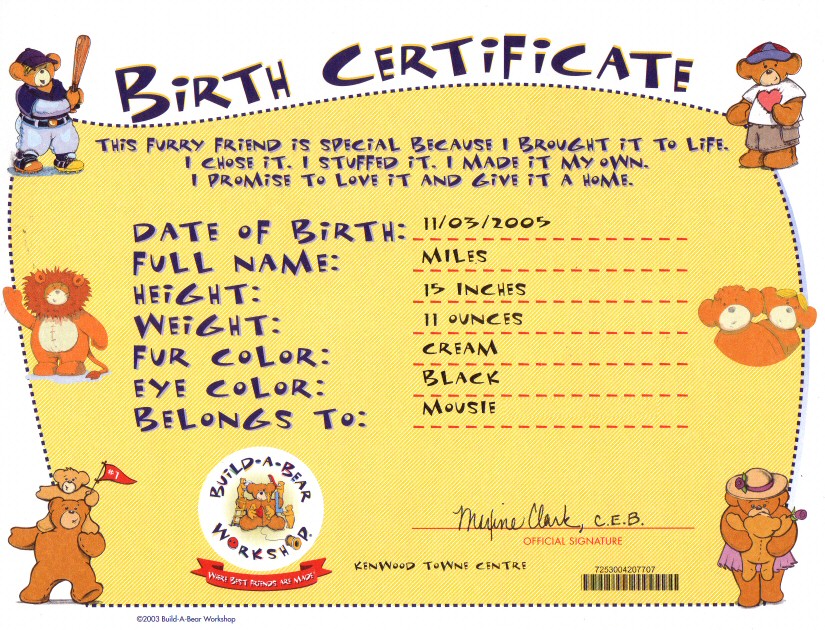 BIRTH CERTIFICATE
THIS FURRY FRIEND IS SPECIAL BECAUSE I BROUGHT IT TO LIFE.
I CHOSE IT. I STUFFED IT. I MADE IT MY OWN.
I PROMISE TO LOVE IT AND GIVE IT A HOME.
DATE OF BIRTH: 11/03/2005
FULL NAME: MILES
HEIGHT: 15 INCHES
WEIGHT: 11 OUNCES
FUR COLOR: CREAM
EYE COLOR: BLACK
BELONGS TO: MOUSIE
#1
BUILD-A-BEAR
WORKSHOP.
WHERE BEST FRIENDS ARE MADE!
Maxine Clark, C.E.B.
OFFICIAL SIGNATURE
KENWOOD TOWNE CENTRE
7253004207707
©2003 Build-A-Bear Workshop